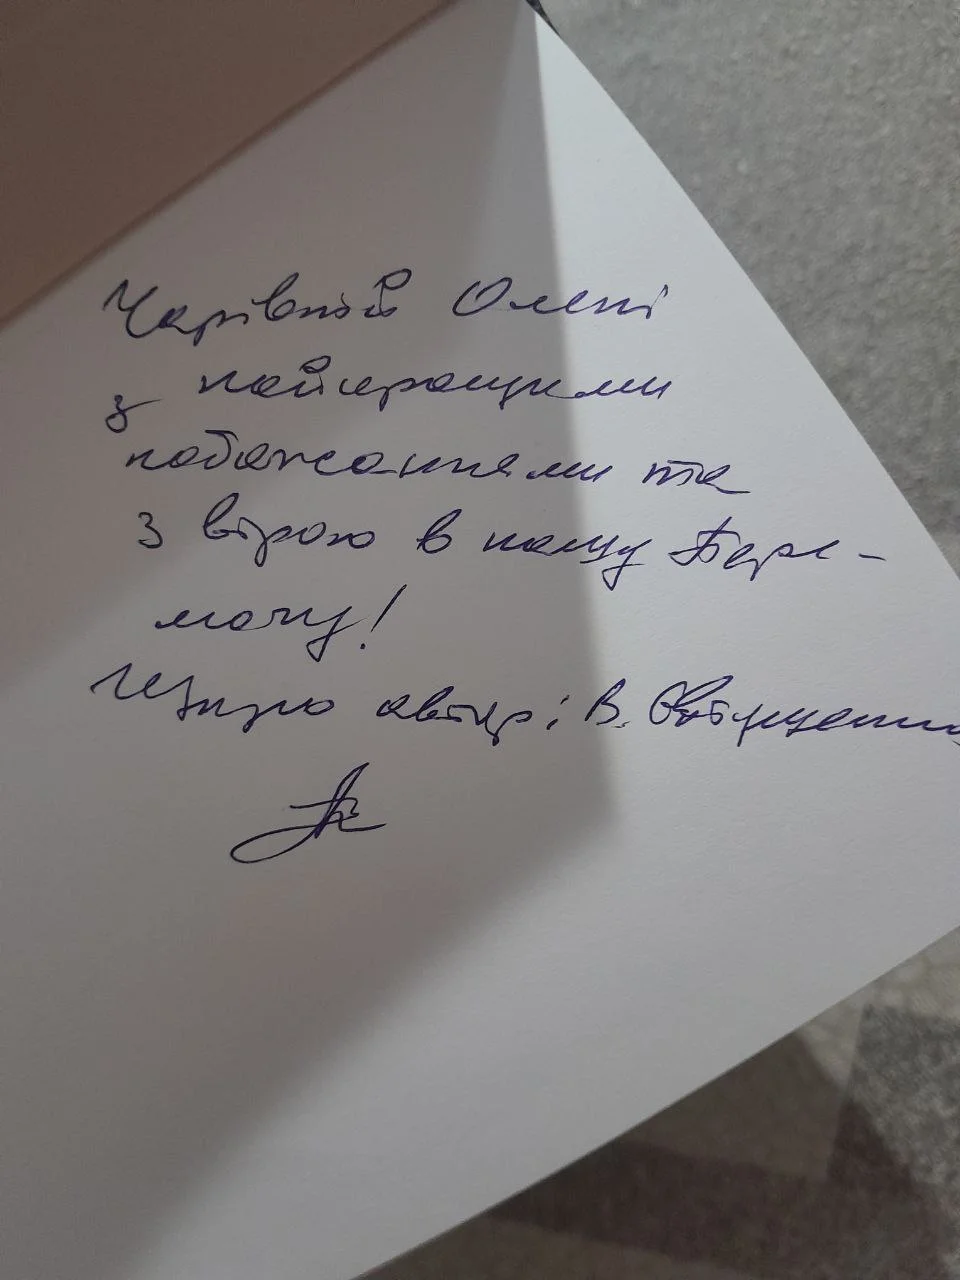 Чарівній Олені
з найкращими
побажаннями та
з вірою в нашу Пере-
могу!
Щиро автор: В.